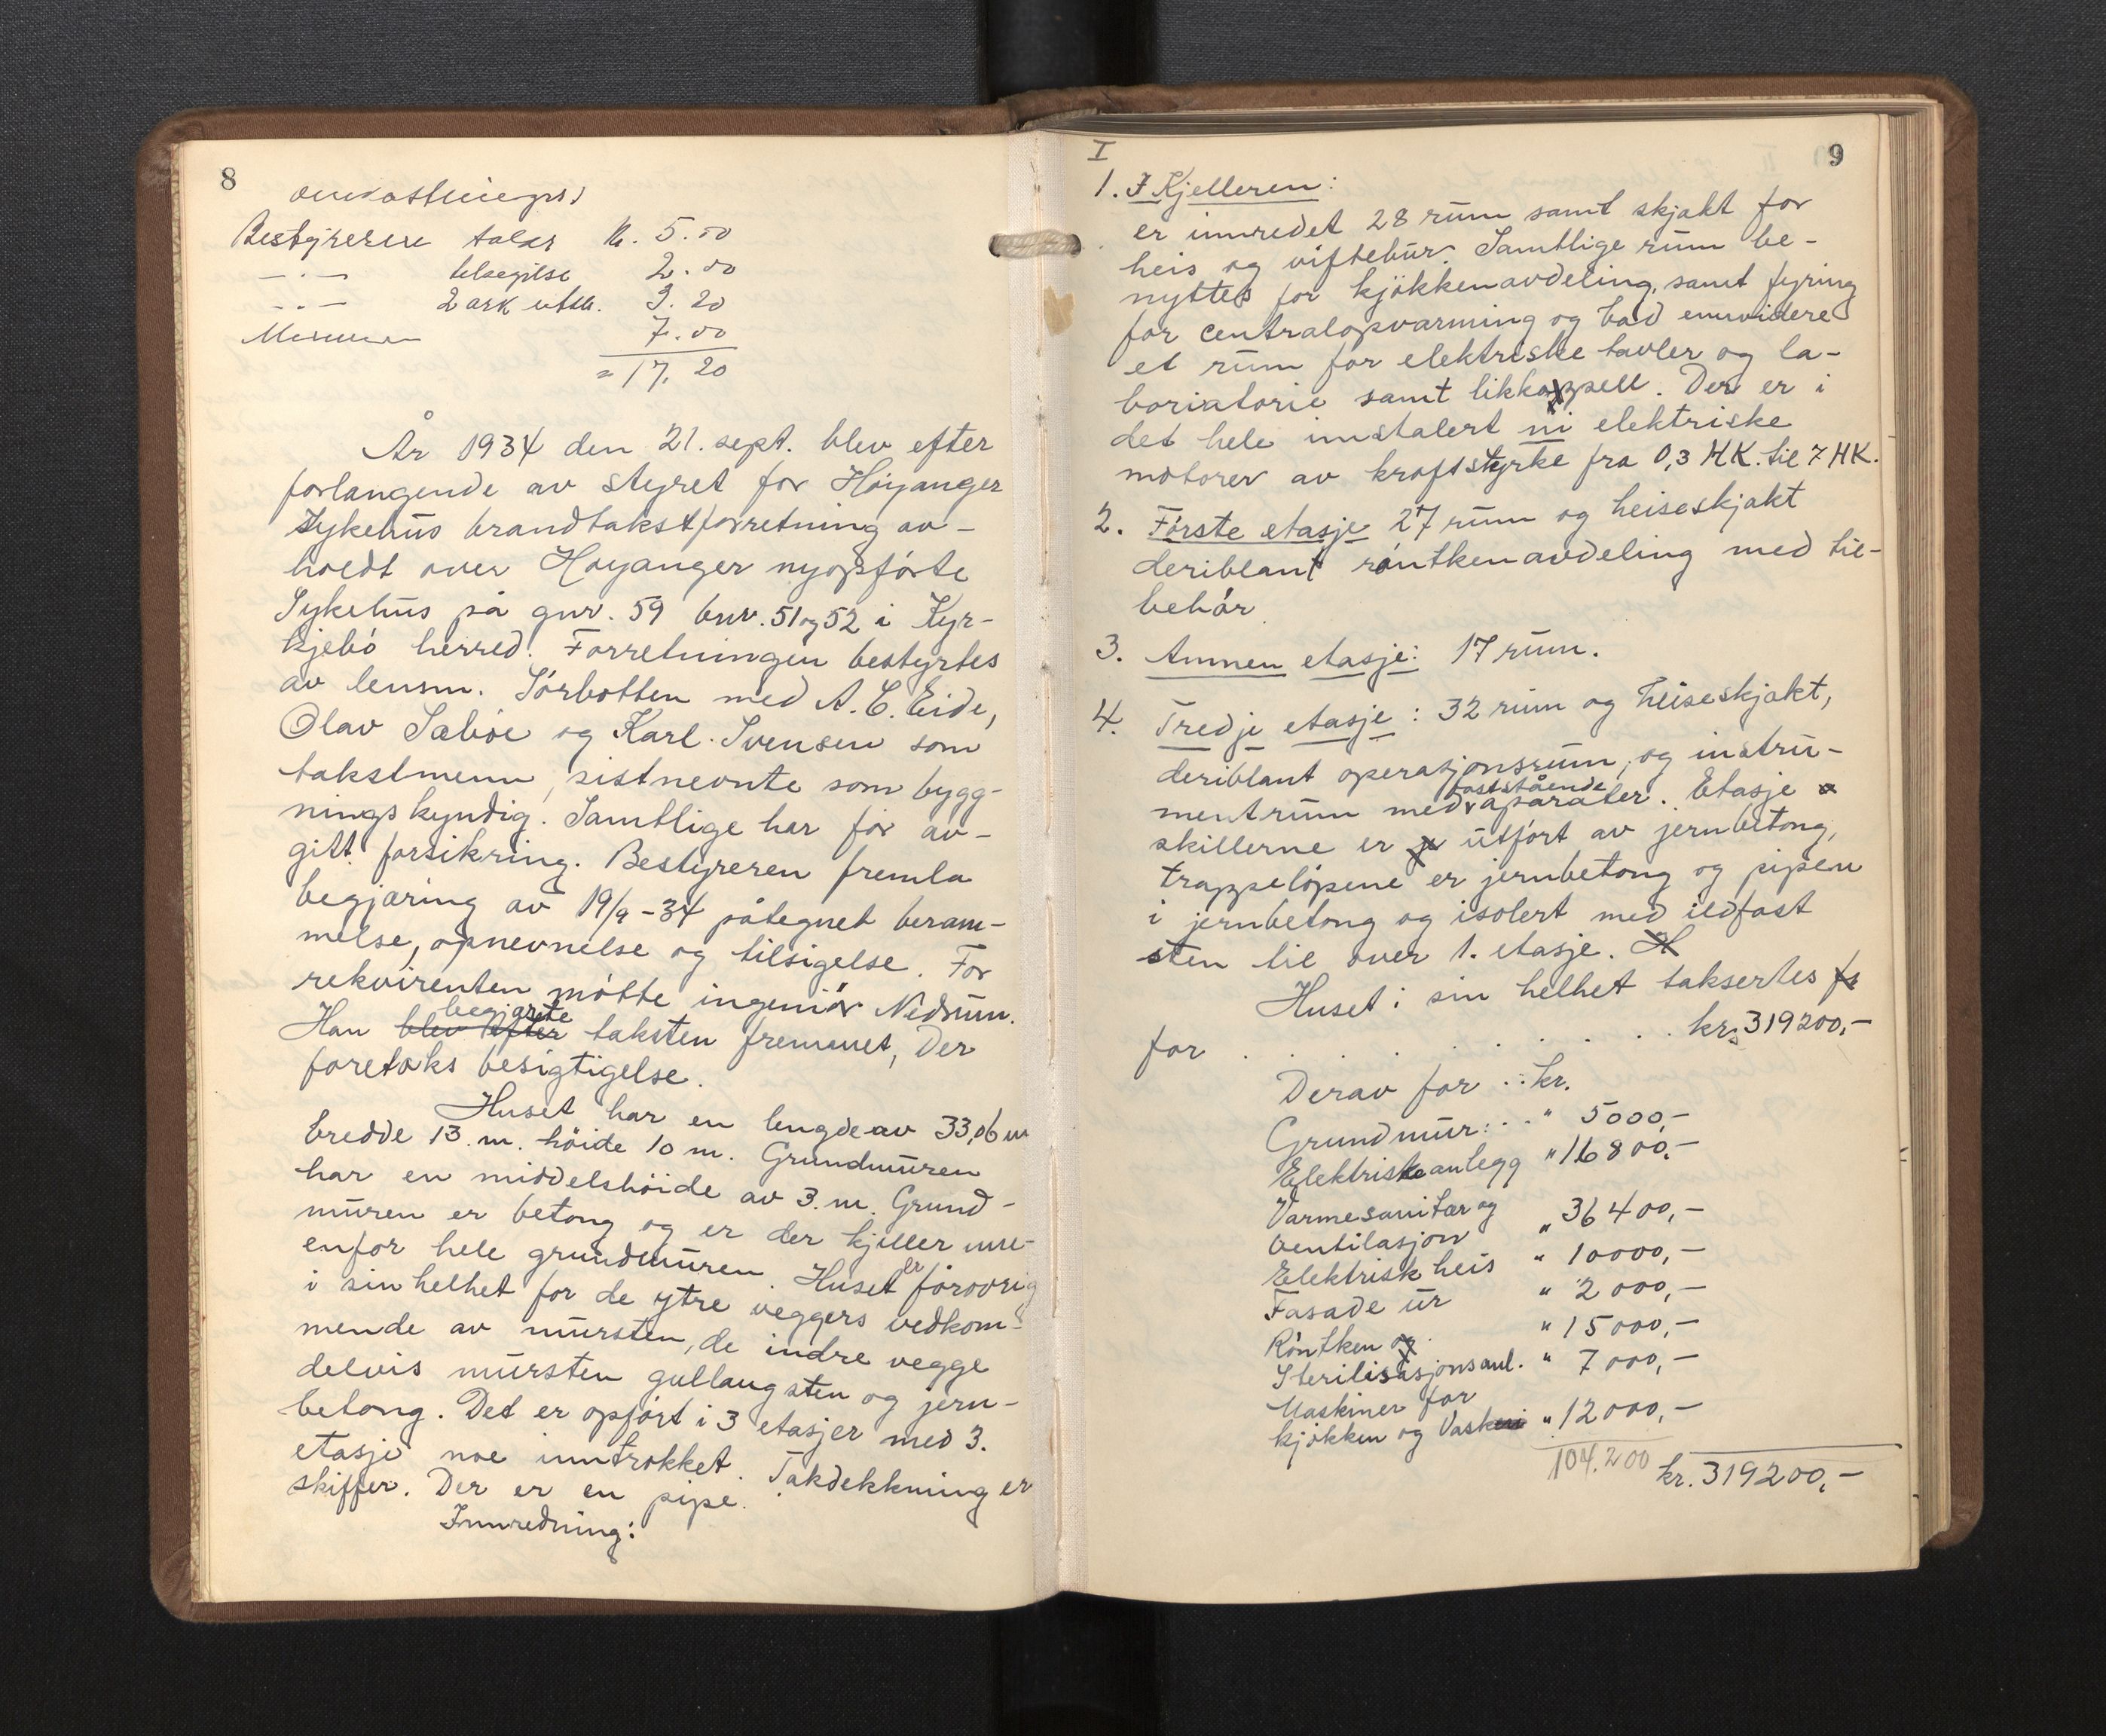 8
Bestyreren taksr kr. 5.00
— . — 2.00
— . — 2 ark utsk. 3.20
7.00
= 17.20
År 1934 den 21. sept. blev efter
forlangende av styret for Höyanger
sykehus brandtakstforretning av-
holdt over Höyanger nyopförte
Sykehus på gnr. 59 bnr. 51 og 52 i Kyr-
kjebö herred. Forretningen bestyrtes
av lensm. Sörbotten med A. C. Eide,
Olav Sæböe og Karl Svensen som
takstmenn, sistnevnte som bygg-
ningskyndig. Samtlige har för av-
gitt forsikring. Bestyreren fremla
begjæring av 19/9-34 påtegnet beram-
melse, opnevnelse og tilsigelse. For
rekvirenten mötte ingeniör Nedrum.
begjærte
Han blev efter taksten fremmet, Der
foretoks besigtigelse.
Huset har en lengde av 33,06 m
bredde 13 m. höide 10 m. Grundmuren
har en middelshöide av 3. m. Grund-
muren er betong og er der kjeller inn-
enfor hele grundmuren. Huset er forövrig
i sin helhet for de ytre veggers vedkom-
mende av mursten, de indre vegge
delvis mursten gullaugsten og jern-
betong. Det er opfört i 3 etasjer med 3.
etasje noe inntrokket. Takdekkning er
skiffer. Der er en pipe.
Innredning:
I
9
1. I Kjelleren:
er innredet 28 rum samt skjakt for
heis og viftebur. Samtlige rum be-
nyttes for kjökkenavdeling, samt fyring
for centralopvarming og bad enmvidere
et rum for elektriske tavler og la-
boriatorie samt likkappsell. Der er i
det hele instalert ni elektriske
motorer av kraftstyrke fra 0,3 HK. til 7 HK.
2. Förste etasje 27 rum og heiseskjakt
deriblant röntkenavdeling med til-
behör.
3. Annen etasje: 17 rum.
4. Tredje etasje: 32 rum og heiseskjakt,
deriblant operasjonsrum, og instru-
faststående
mentrum med aparater. Etasje
skillerne er utfört av jernbetong,
trappelöpene er jernbetong og pipen
i jernbetong og isolert med ildfast
sten til over 1. etasje. H
Huset i sin helhet taksertes fr
for . . . . . . . . kr. 319200,-
Derav for : kr.
Grundmur: . . " 5000,-
Elektriske anlegg " 16800,-
Varme sanitær og
ventilasjon " 36400,-
Elektrisk heis " 10000,-
Fasade ur " 2000,-
Röntken og " 15000,-
Sterilisasjonsanl. " 7000,-
Maskiner for
kjökken og Vaskeri " 12000,-
104.200 kr. 319200,-